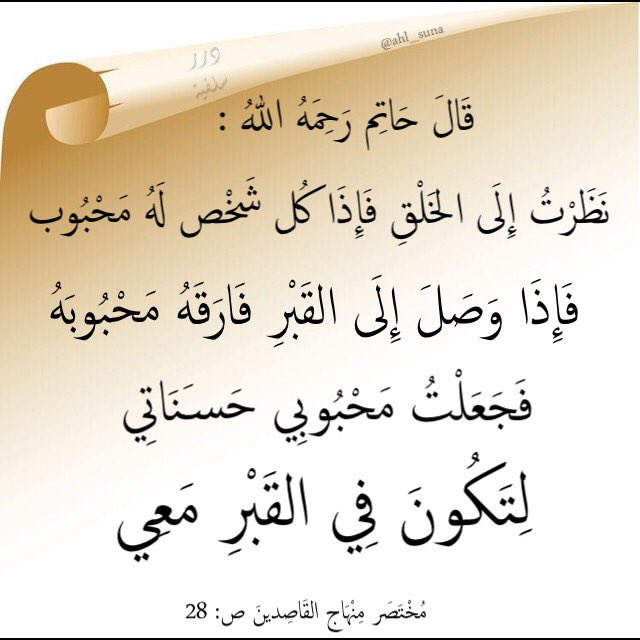 @ahl_suna
درر
سلفية
قَالَ حَاتِم رَحِمَهُ اللهُ :
نَظَرْتُ إِلَى الخَلْقِ فَإِذَا كُل شَخْص لَهُ مَحْبُوب
فَإِذَا وَصَلَ إِلَى القَبْرِ فَارَقَهُ مَحْبُوبَهُ
فَجَعَلْتُ مَحْبُوبِي حَسَنَاتِي
لِتَكُونَ فِي القَبْرِ مَعِي
مُخْتَصَر مِنْهَاج القَاصِدينَ ص: 28